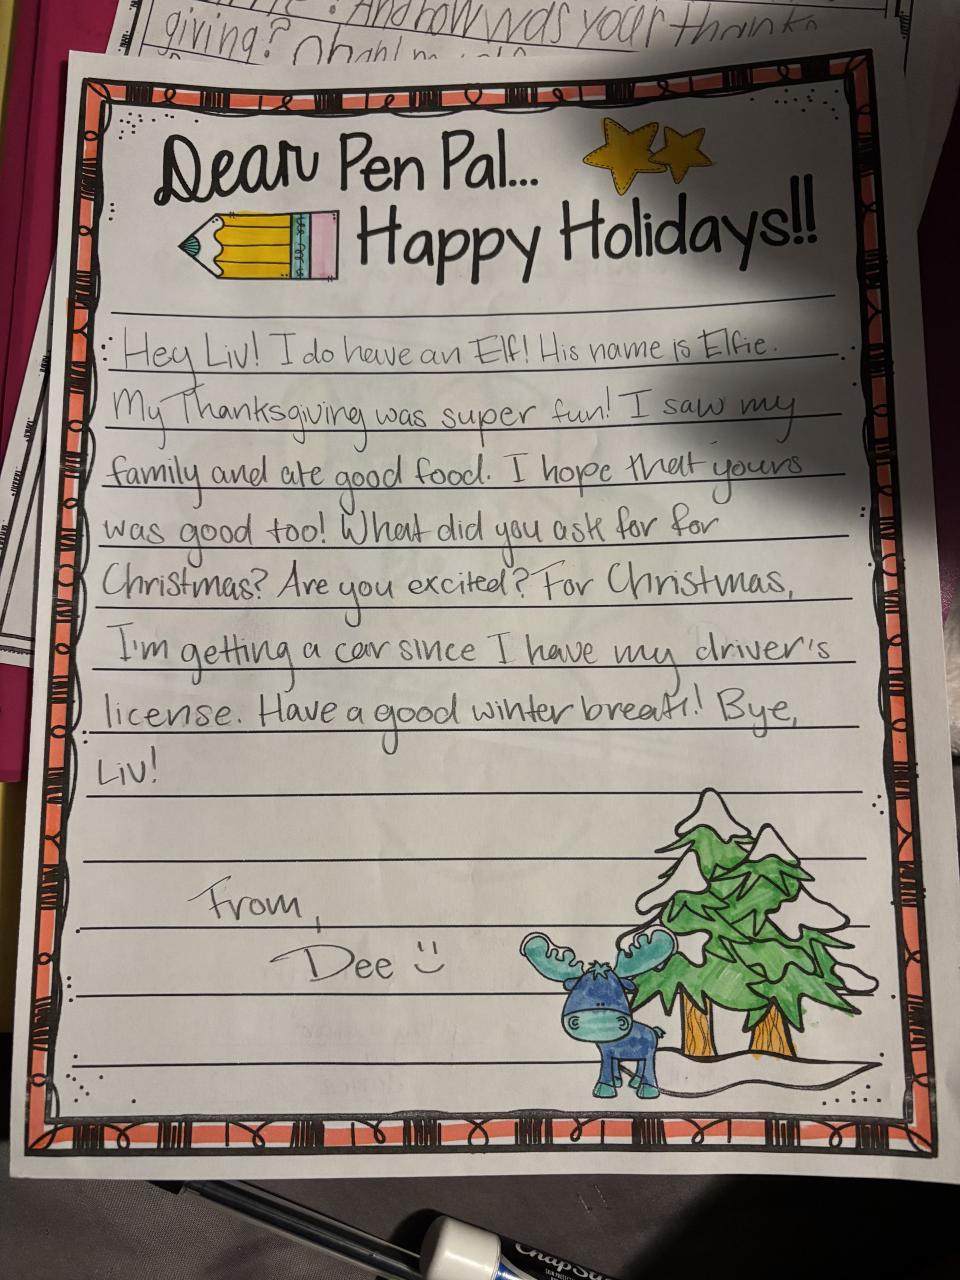 And how was your thanks
giving?
Dear Pen Pal...
Happy Holidays!!
Hey Liv! I do have an Elf! His name is Elfie.
My Thanksgiving was super fun! I saw my
family and ate good food. I hope that yours
was good too! What did you ask for for
Christmas? Are you excited? For Christmas,
I'm getting a car since I have my driver's
license. Have a good winter break! Bye,
Liv!
From,
Dee
ChapSti